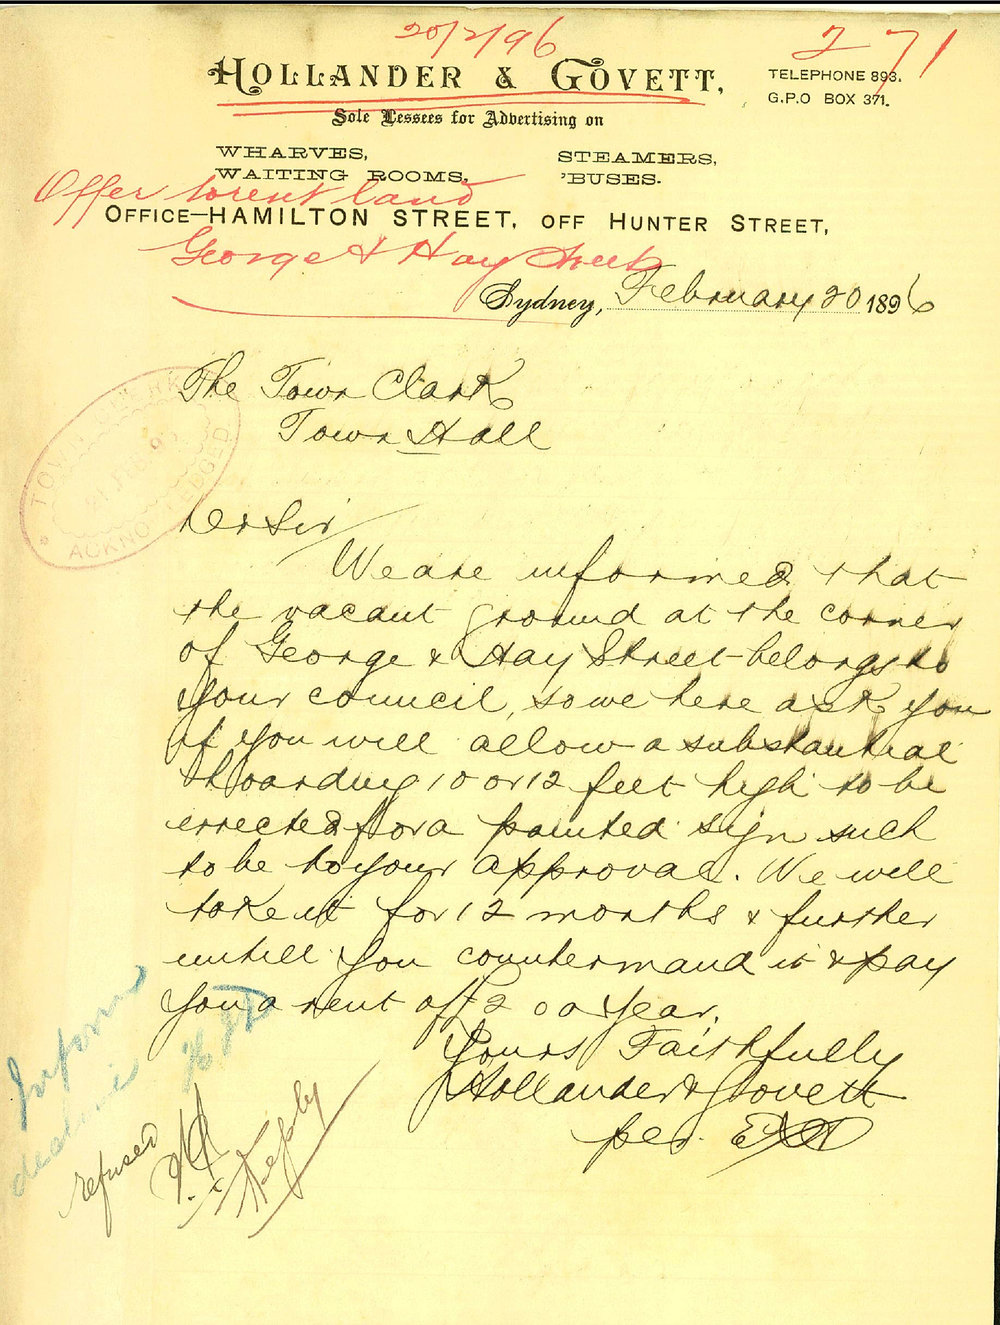 20/2/96
271
HOLLANDER & GOVETT,
TELEPHONE 893.
G.P.O BOX 371.
Sole Lessees for Advertising on
WHARVES,
STEAMERS,
WAITING ROOMS,
'BUSES.
Offer to rent land
OFFICE—HAMILTON STREET, OFF HUNTER STREET,
George & Hay Streets
Sydney, February 20 1896
The Town Clark
Town Hall
TOWN CLERK
21 FEB 96
ACKNOWLEDGED
Dr Sir
We are informed that
the vacant ground at the corner
of George & Hay Street belongs to
your council, so we here ask you
if you will allow a substantial
Hoarding 10 or 12 feet high to be
errected for a painted sign such
to be to your approval. We will
take it for 12 months & further
untill you countermand it & pay
you a rent of £20 a year.
Yours Faithfully
Hollander & Govett
per.
Inform
refused
Reply